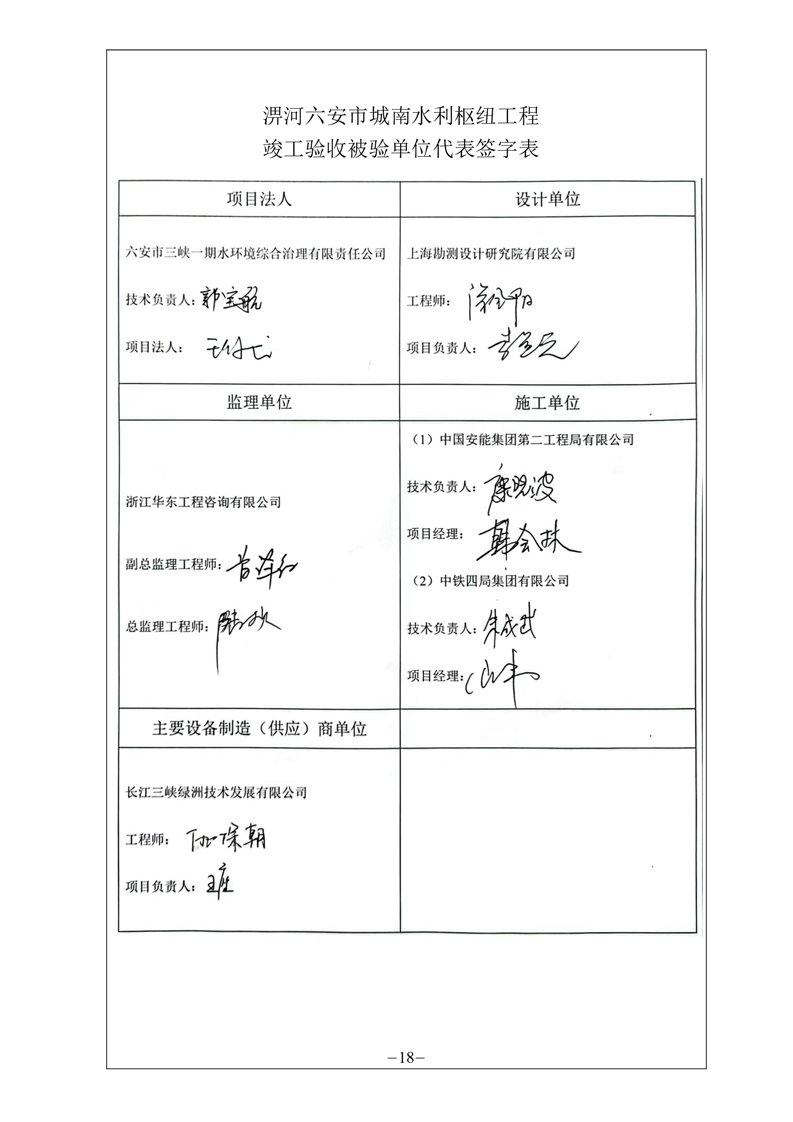 淠河六安市城南水利枢纽工程
竣工验收被验单位代表签字表
项目法人
设计单位
六安市三峡一期水环境综合治理有限责任公司
技术负责人：郭宝航
项目法人：
上海勘测设计研究院有限公司
工程师：
项目负责人：
监理单位
施工单位
浙江华东工程咨询有限公司
副总监理工程师：
总监理工程师：
（1）中国安能集团第二工程局有限公司
技术负责人：康晓波
项目经理：韩会林
（2）中铁四局集团有限公司
技术负责人：朱成
项目经理：
主要设备制造（供应）商单位
长江三峡绿洲技术发展有限公司
工程师：
项目负责人：
–18–